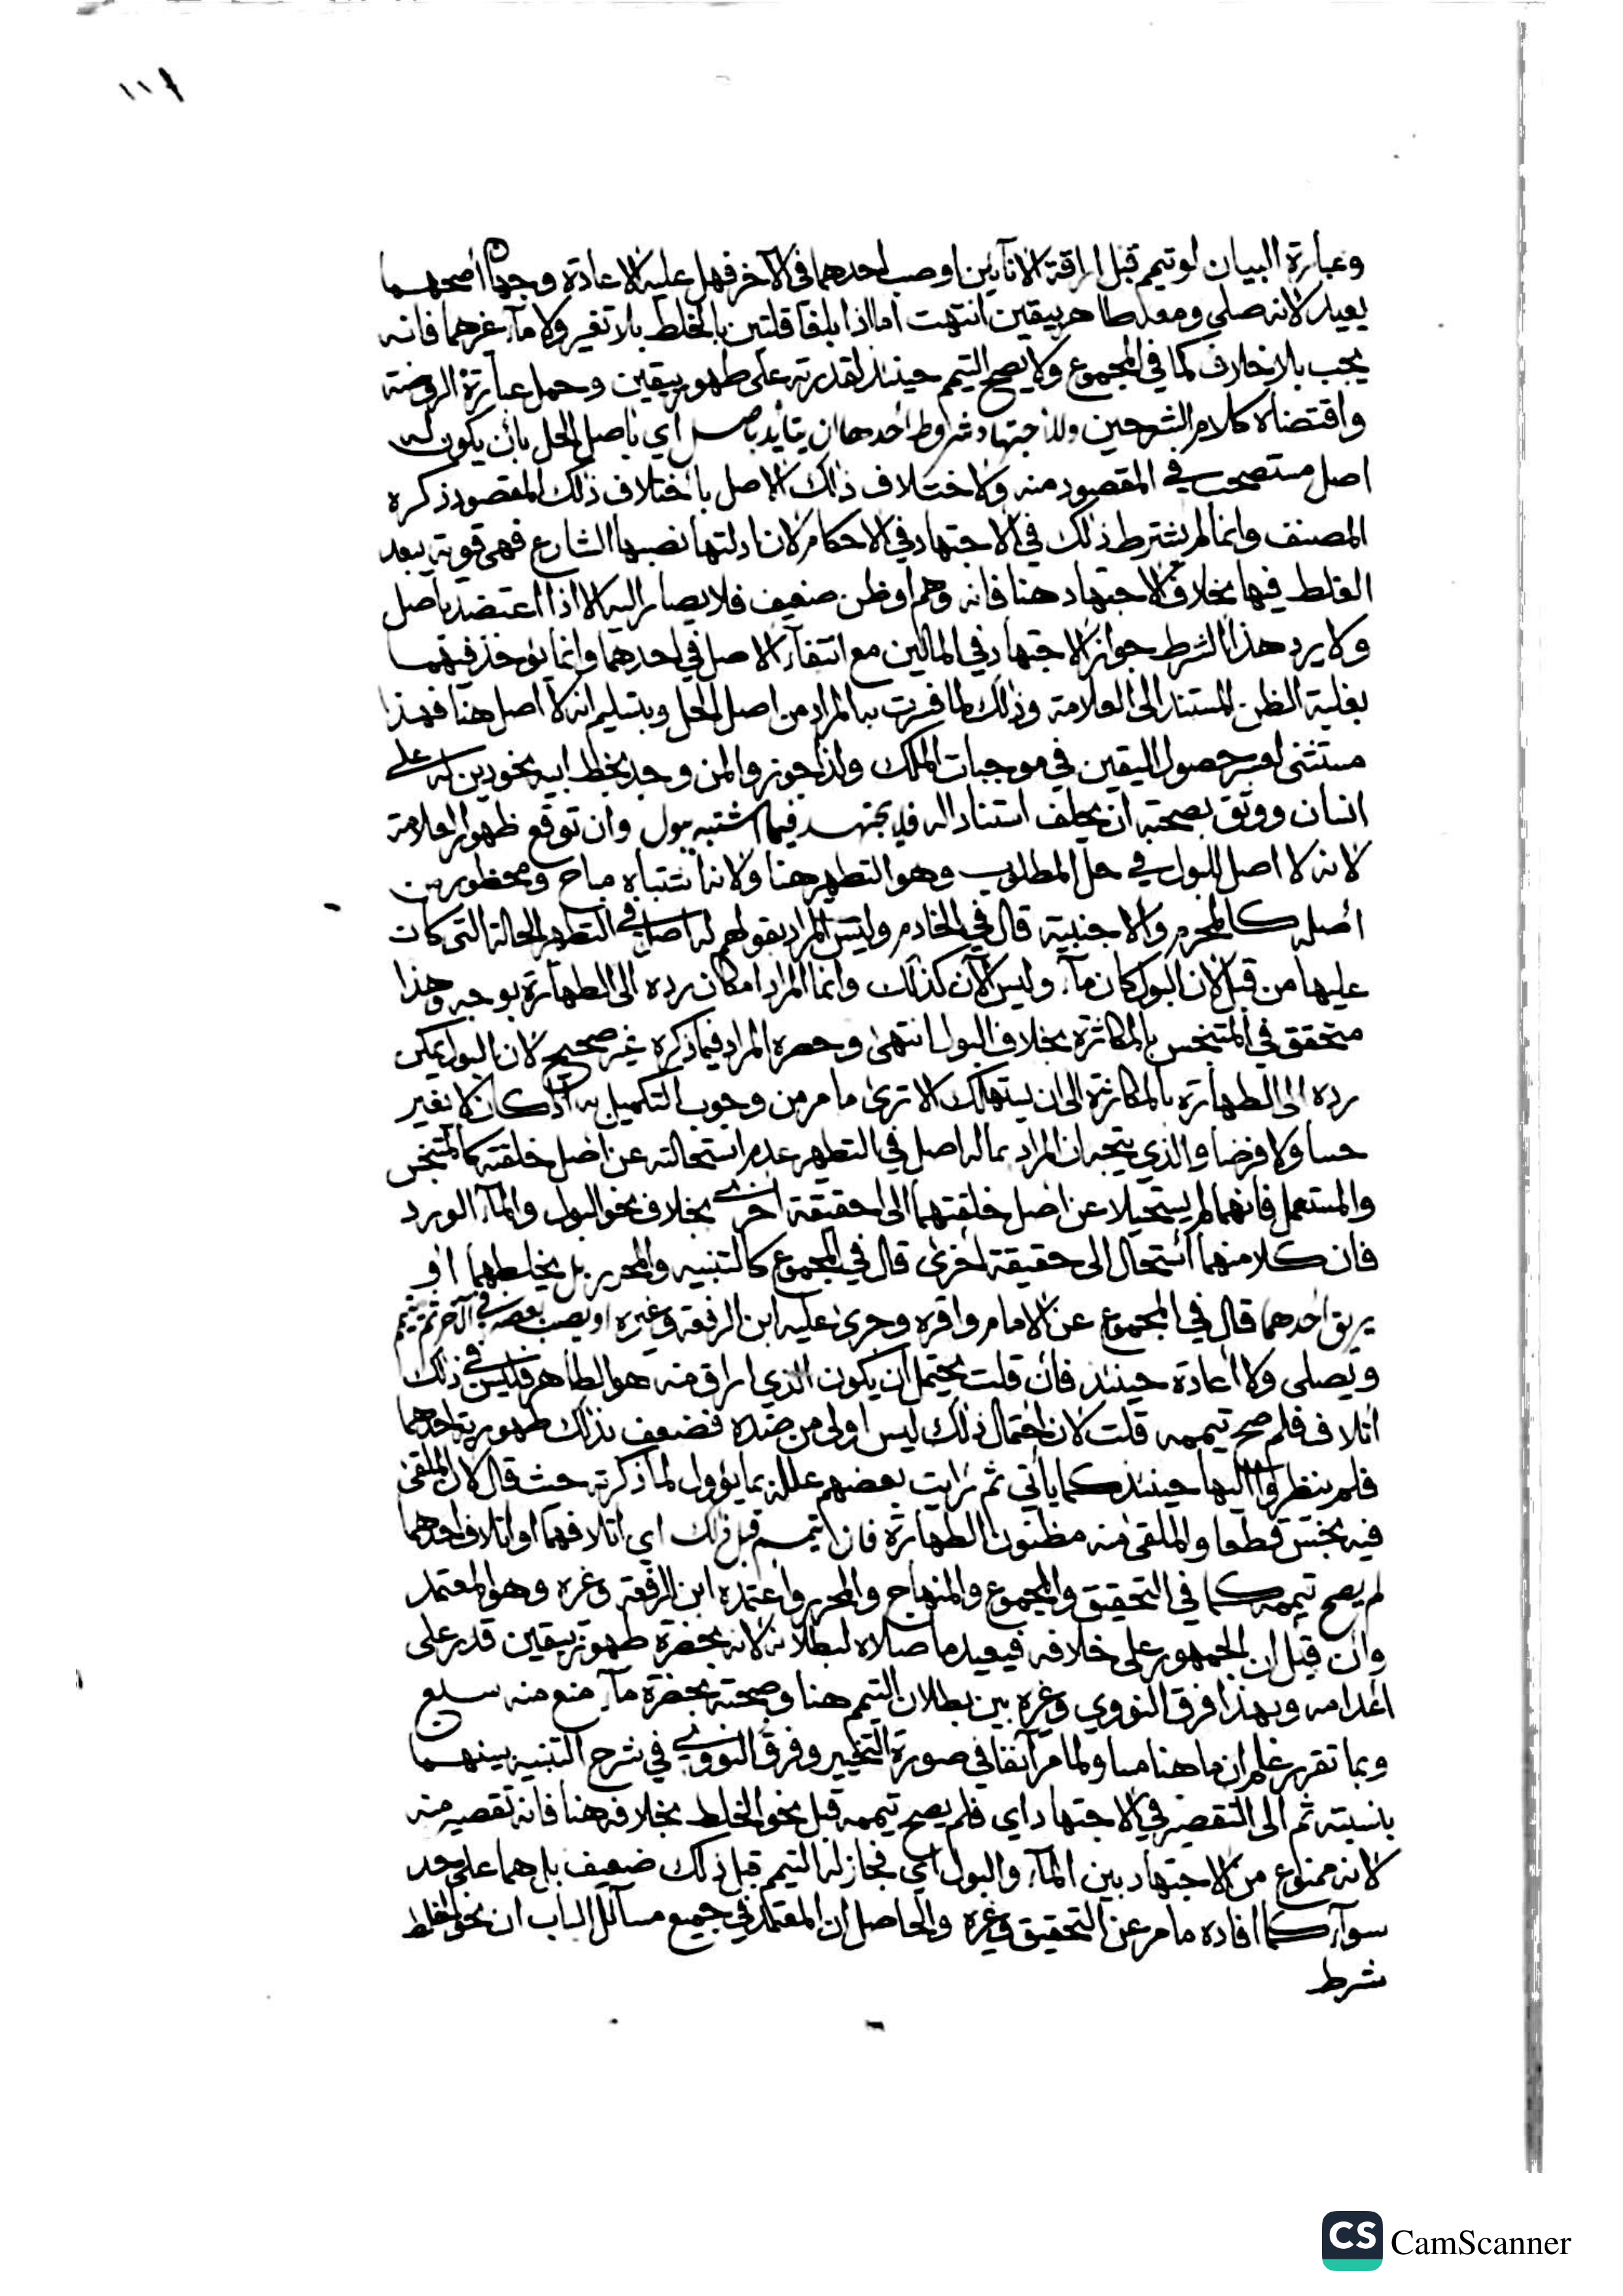 ١١٢
وعبارة البيان لو تيمم قبل اراقة الانآئين او صب احدهما في الآخر فهل عليه الاعادة وجهان اصحهما
يعيد لانه صلي ومعه طاهر بيقين انتهت اما اذا بلغا قلتين بالخلط بلا تغير ولا مآء غيرهما فانه
يجب بلا خلاف كما في المجموع ولا يصح التيمم حينئذ لقدرته على طهور بيقين وحمل عبارة الروضة
واقتضاه كلام الشرحين وللاجتهاد شروط احدها ان يتأيد باصل اي باصل الحل بان يكون له
اصل مستصحب في المقصود منه ولاختلاف ذلك الاصل باختلاف ذلك المقصود ذكره
المصنف وانما لم يشترط ذلك في الاجتهاد في الاحكام لان ادلتها نصبها الشارع فهي قوية يبعد
الغلط فيها بخلاف الاجتهاد هنا فانه وهم او ظن ضعيف فلا يصار اليه الا اذا اعتضد باصل
ولا يرد هذا الشرط جواز الاجتهاد في المالين مع انتفآء الاصل في احدهما وانما يؤخذ فيهما
بغلبة الظن المستند الى العلامة وذلك لما فسرت به المراد من اصل الحل وبتسليم انه لا اصل هنا فهذا
مستثنى لعسر حصول اليقين في موجبات الملك ولذا جوزوا لمن وجد بخط ابيه نحو دين له على
انسان ووثق بصحته ان يحلف استنادا اليه فلا يجتهد فيما اشتبه ببول وان توقع ظهور العلامة
لانه لا اصل للبول في حل المطلوب وهو التطهير هنا ولانه اشتباه مباح ومحظور من
اصله كالمحرم والاجنبية قال في الخادم وليس المراد بقولهم له اصل في التطهير الحالة التي كان
عليها من قبل لان البول كان مآء وليس الآن كذلك وانما المراد امكان رده الى الطهارة بوجه وهذا
متحقق في المتنجس بالمكاثرة بخلاف البول انتهى وحصره المراد فيما ذكره غير صحيح لان البول يمكن
رده الى الطهارة بالمكاثرة الى ان يستهلك الا ترى ما مر من وجوب التكميل به اذا كان لا تغير
حسا ولا فرضا والذي يتجه ان المراد بما له اصل في التطهير عدم استحالته عن اصل خلقته كالمتنجس
والمستعمل فانهما لم يستحيلا عن اصل خلقتهما الى حقيقة اخرى بخلاف نحو البول والمآء الورد
فان كلا منهما استحال الى حقيقة اخرى قال في المجموع كالتنبيه والمحرر بل يخلطهما او
يريق احدهما قال في المجموع عن الامام واقره وجرى عليه ابن الرفعة وغيره او يصب بعضه في الآخر ثم يتيمم
ويصلي ولا اعادة حينئذ فان قلت يحتمل ان يكون الذي اراق منه هو الطاهر فليس في ذلك
اتلاف فلم صح تيممه قلت لان احتمال ذلك ليس اولى من ضده فضعف بذلك طهورية احدهما
فلم ينظروا اليها حينئذ كما يأتي ثم رايت بعضهم علله بما يؤول لما ذكرته حيث قال لان الملقى
فيه نجس قطعا والملقى منه مظنون الطهارة فان تيمم قبل ذلك اي اتلافهما او اتلاف احدهما
لم يصح تيممه كما في التحقيق والمجموع والمنهاج والمحرر واعتمده ابن الرفعة وغيره وهو المعتمد
وان قيل ان الجمهور على خلافه فيعيد ما صلاه لبطلانه لانه بحضرة طهور بيقين قدر على
اعدامه وبهذا فرق النووي وغيره بين بطلان التيمم هنا وصحته بحضرة مآء منع منه سبع
وبما تقرر علم ان ما هنا مساو لما مر آنفا في صورة التحير وفرق النووي في شرح التنبيه بينهما
بنسبته ثم الى التقصير في الاجتهاد اي فلم يصح تيممه قبل نحو الخلط بخلافه هنا فانه لا تقصير منه
لانه ممنوع من الاجتهاد بين المآء والبول اي فجاز له التيمم قبل ذلك ضعيف بل هما على حد
سوآء كما افاده ما مر عن التحقيق وغيره والحاصل ان المعتمد في جميع مسآئل الباب ان نحو الخلط
شرط
CS CamScanner